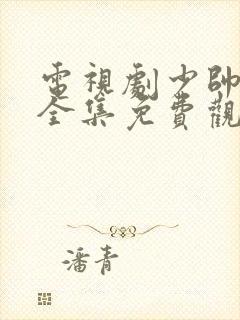 電視劇少帥
全集免費觀
潘青